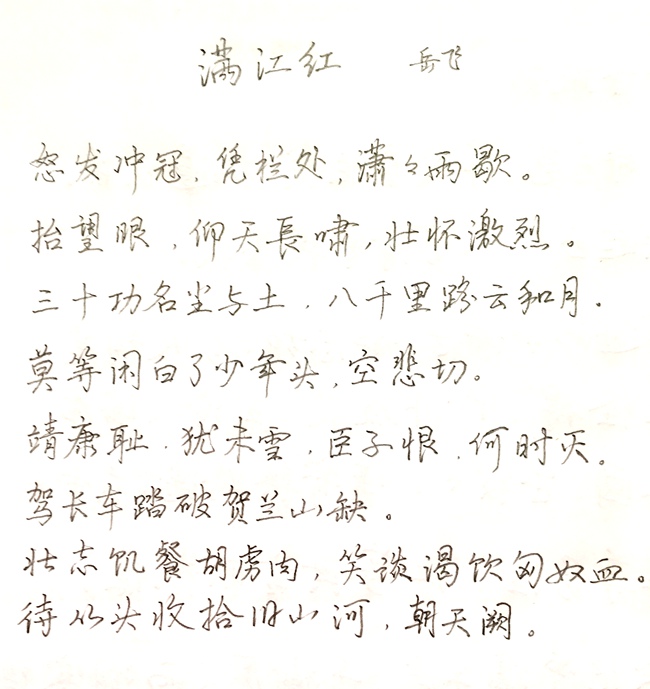 满江红 岳飞
怒发冲冠，凭栏处，潇々雨歇。
抬望眼，仰天長啸，壮怀激烈。
三十功名尘与土，八千里路云和月．
莫等闲白了少年头，空悲切。
靖康耻．犹未雪，臣子恨．何时灭。
驾长车踏破贺兰山缺。
壮志饥餐胡虏肉，笑谈渴饮匈奴血。
待从头收拾旧山河，朝天阙。